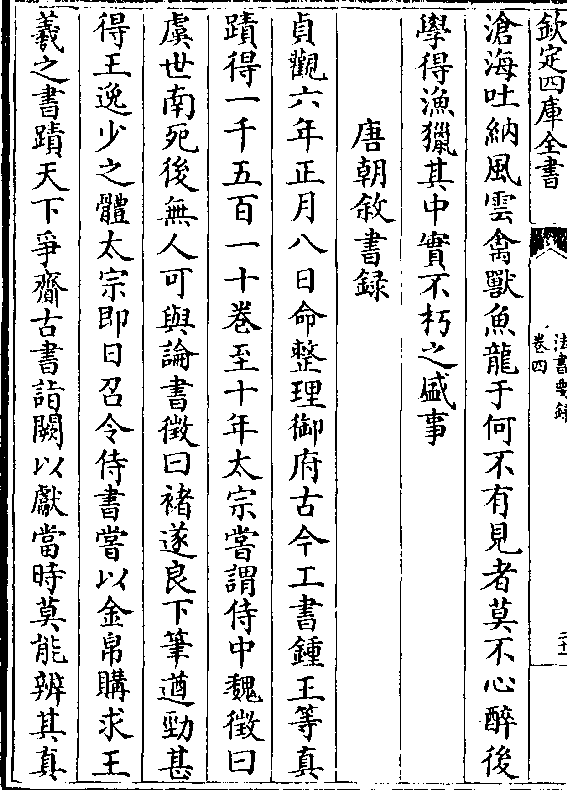 欽定四庫全書
法書要録
卷四
滄海吐納風雲禽獸魚龍于何不有見者莫不心醉後
學得漁獵其中實不朽之盛事
唐朝敘書録
貞觀六年正月八日命整理御府古今工書鍾王等真
蹟得一千五百一十卷至十年太宗嘗謂侍中魏徵曰
虞世南死後無人可與論書徵曰褚遂良下筆遒勁甚
得王逸少之體太宗即日召令侍書嘗以金帛購求王
羲之書蹟天下爭齎古書詣闕以獻當時莫能辨其真